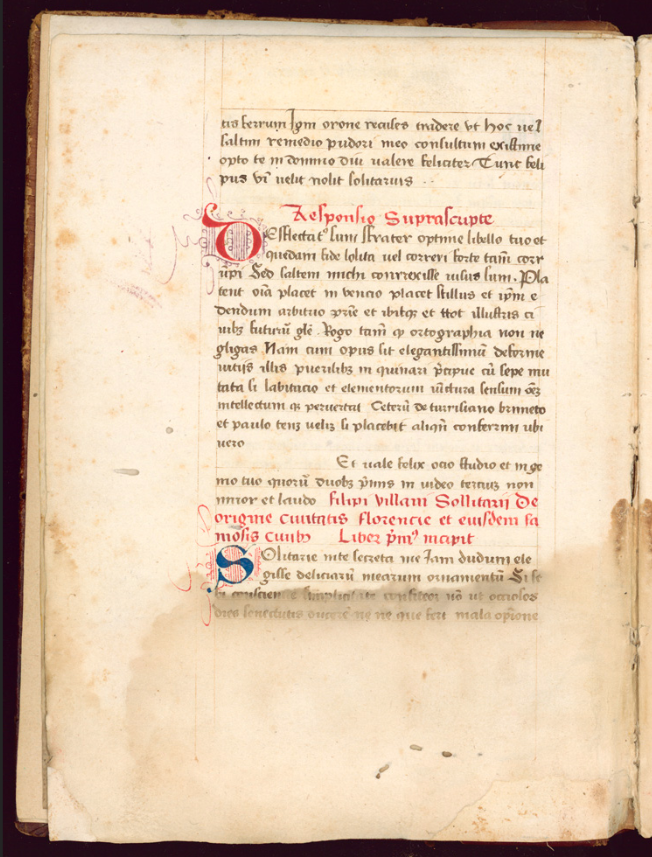 tis ferrum Igm orone recules tridere vt hoc uel
saltim remedio pudori meo consultum existime
opto te in domino diu ualere feliciter Tunc feli
pus vi uelit nolit solitarius
Responsio Suprascripte
DElectat9 sum frater optime libello tuo et
quedam fide solita uel correri forte tam corr
upi Sed saltem michi correxisse uisus sum. Pla
cent oia placet inuencio placet stillus et ipm e
dendum arbitrio prie et ibitqz et ttot illustris ci
uibz futurū gle. Rogo tam qz ortographia non ne
gligas Nam cum opus sit elegantissimū deforme
uitijs illis puerilibz inquinari pcipue cū sepe mu
tata si labitacio et elementorum iūctura sensum oēz
intellectum qz peruertit Ceterū de turrisiano bruneto
et paulo tenz uelis si placebit aliqn conferimi ubi
uero
Et uale felix ocio studio et inge
nio tuo quorū duobz primis in uideo tercius non
miror et laudo filipi villani Sollitarij De
origine ciuitatis florencie et eiusdem fa
mosis ciuibz Liber pm9 incipit
SOlitarie uite secreta me Iam dudum ele
gisse deliciarū mearum ornamentū Si se
simplicitate confiteor nō ut occiosos
dies senectutis ducere ne qua feri mala opione